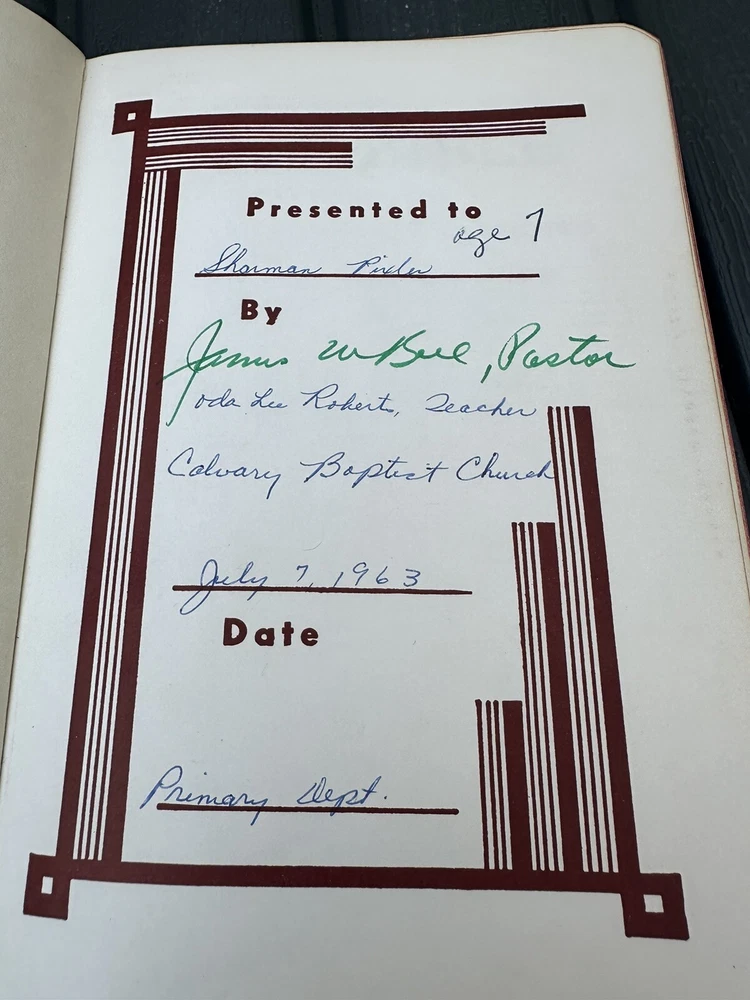 Presented to
age 7
Sharman
By
James W Bell, Pastor
oda Lee Roberts, Teacher
Calvary Baptist Church
July 7, 1963
Date
Primary Dept.